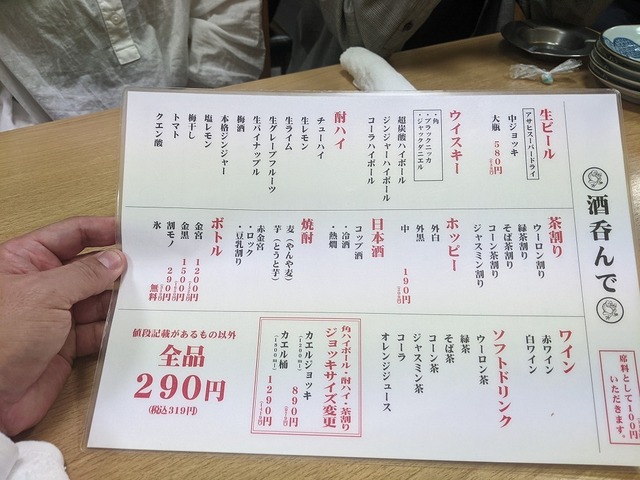 酒呑んで
席料として100円
いただきます。
生ビール
アサヒスーパードライ
中ジョッキ
大瓶 580円
ウイスキー
・角
・ブラックニッカ
・ジャックダニエル
超炭酸ハイボール
ジンジャーハイボール
コーラハイボール
酎ハイ
チューハイ
生レモン
生ライム
生グレープフルーツ
生パイナップル
梅酒
本格ジンジャー
塩レモン
梅干し
トマト
クエン酸
茶割り
ウーロン割り
緑茶割り
そば茶割り
コーン茶割り
ジャスミン割り
ホッピー
外白
外黒
中 190円
日本酒
コップ酒
・冷酒
・熱燗
焼酎
麦(やんや麦)
芋(とうと芋)
赤金宮
・ロック
・豆乳割り
ボトル
金宮 1200円
金黒 1500円
割モノ 290円
氷 無料
ワイン
赤ワイン
白ワイン
ソフトドリンク
ウーロン茶
緑茶
そば茶
コーン茶
ジャスミン茶
コーラ
オレンジジュース
角ハイボール・酎ハイ・茶割り
ジョッキサイズ変更
カエルジョッキ 890円
(1200ml)
カエル桶 1290円
(1800ml)
値段記載があるもの以外
全品
290円
(税込319円)